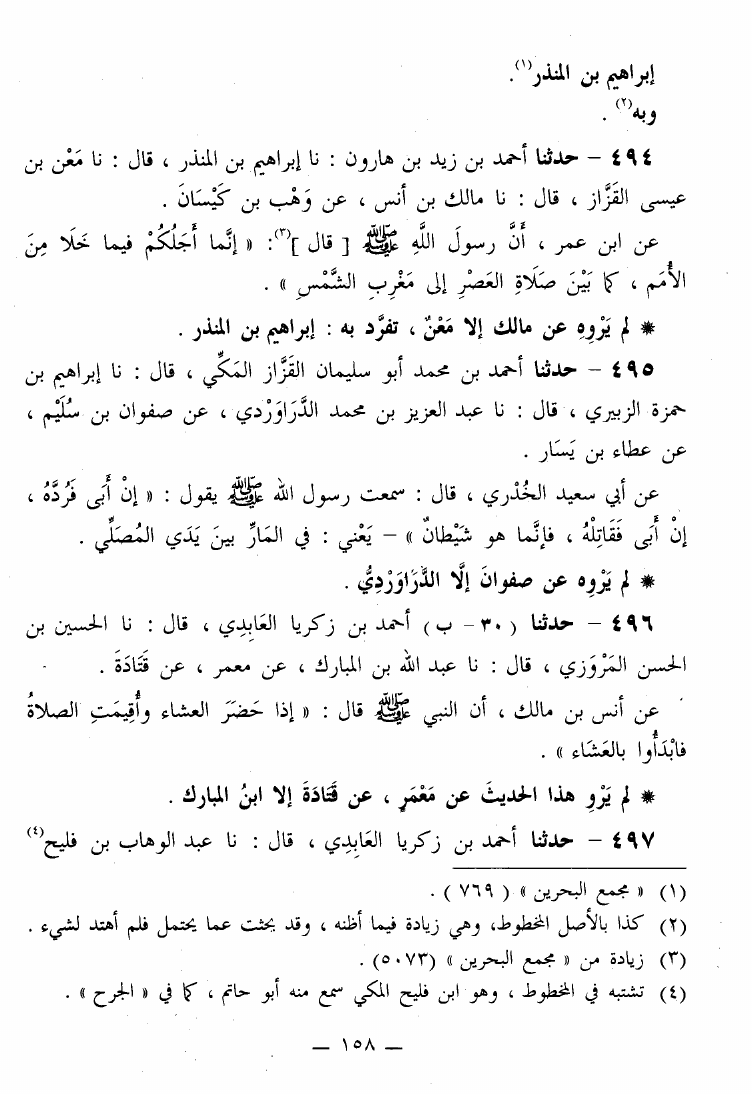 إبراهيم بن المنذر(١).
وبه(٢) .
٤٩٤ – حدثنا أحمد بن زيد بن هارون : نا إبراهيم بن المنذر ، قال : نا مَعْن بن
عيسى القَزَّاز ، قال : نا مالك بن أنس ، عن وَهْب بن كَيْسَانَ .
عن ابن عمر ، أَنَّ رسولَ اللَّهِ ﷺ [ قال ](٣): « إنَّما أَجَلُكُمْ فيما خَلَا مِنَ
الأُمَم ، كما بَيْنَ صَلَاةِ العَصْرِ إلى مَغْرِبِ الشَّمْسِ » .
* لم يَرْوِهِ عن مالك إلا مَعْنٌ ، تفرَّد به : إبراهيم بن المنذر .
٤٩٥ – حدثنا أحمد بن محمد أبو سليمان القَزَّاز المَكِّي ، قال : نا إبراهيم بن
حمزة الزبيري ، قال : نا عبد العزيز بن محمد الدَّرَاوَرْدي ، عن صفوان بن سُلَيْم ،
عن عطاء بن يَسَار .
عن أبي سعيد الخُدْري ، قال : سمعت رسول الله ﷺ يقول : « إنْ أَبى فَرُدَّهُ ،
إنْ أَبى فَقَاتِلْهُ ، فإنَّما هو شَيْطانٌ » – يَعْني : في المَارِّ بينَ يَدَي المُصَلِّي .
* لم يَرْوِه عن صفوانَ إلَّا الدَّرَاوَرْدِيُّ .
٤٩٦ – حدثنا (٣٠ – ب) أحمد بن زكريا العَابِدِي ، قال : نا الحسين بن
الحسن المَرْوَزي ، قال : نا عبد الله بن المبارك ، عن معمر ، عن قَتَادَةَ .
عن أنس بن مالك ، أن النبي ﷺ قال : « إذا حَضَرَ العشاء وأُقِيمَتِ الصلاةُ
فابْدَأُوا بالعَشَاء » .
* لم يَرْوِ هذا الحديثَ عن مَعْمَرٍ ، عن قَتَادَةَ إلا ابنُ المبارك .
٤٩٧ – حدثنا أحمد بن زكريا العَابِدِي ، قال : نا عبد الوهاب بن فليح(٤)
(١) « مجمع البحرين » (٧٦٩) .
(٢) كذا بالأصل المخطوط، وهي زيادة فيما أظنه ، وقد بحثت عما يحتمل فلم أهتد لشيء .
(٣) زيادة من « مجمع البحرين » (٥٠٧٣) .
(٤) تشتبه في المخطوط ، وهو ابن فليح المكي سمع منه أبو حاتم ، كما في « الجرح » .
– ١٥٨ –